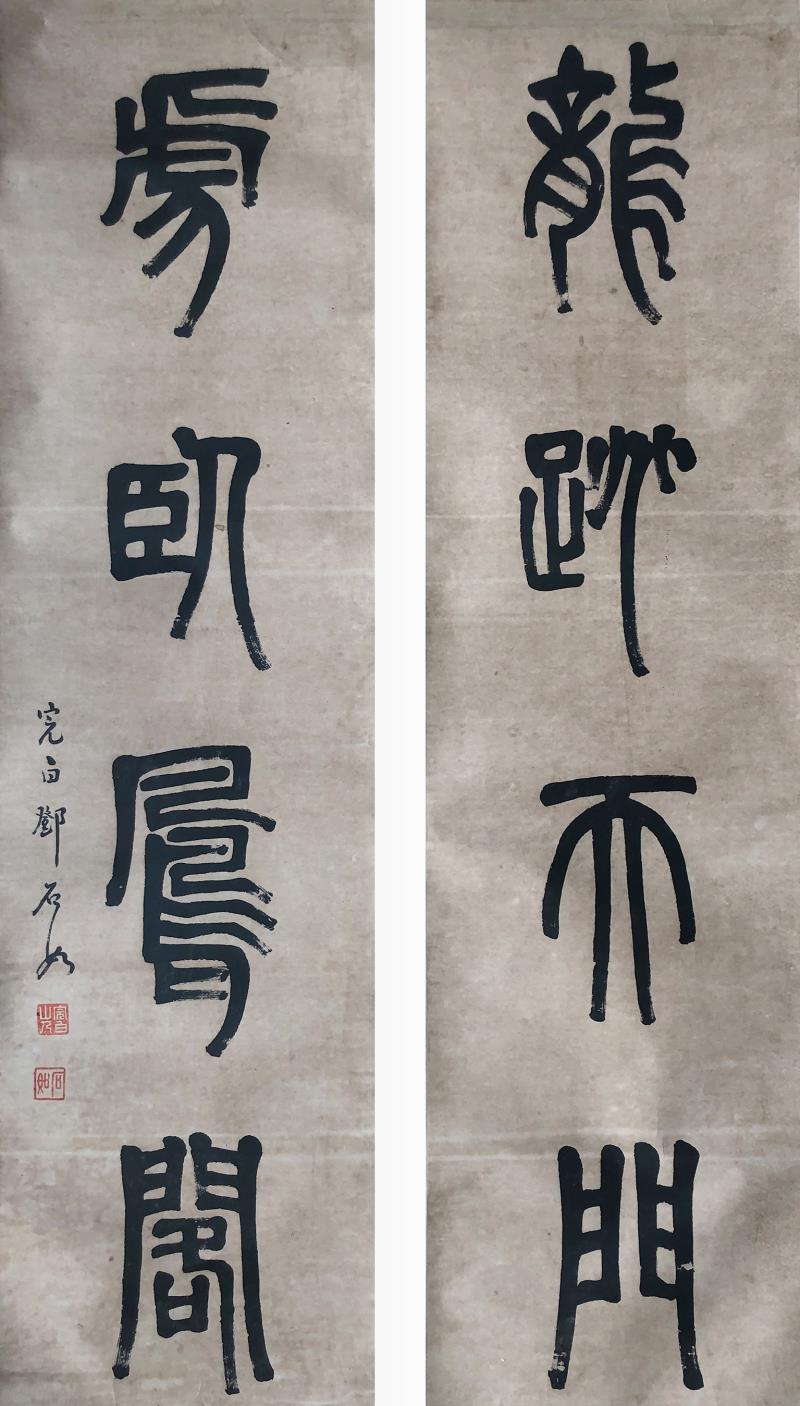 龍跳天門
虎臥鳳閣
完白鄧石如
完白山人
石如